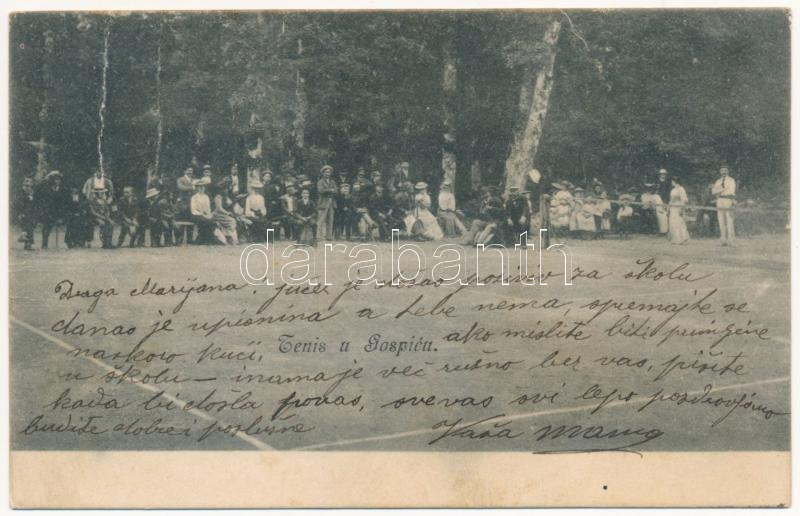 darabanth
Draga Marijana, jučer je došao poziv za školu
danas je upisnina a tebe nema, spremajte se
naskoro kući, ako mislite biti primljene
Tenis u Gospiću.
u školu – i nama je već ružno bez vas, pišite
kada bi došla po vas, sve vas svi lepo pozdravljamo
budite dobre i poslušne Vaša mama